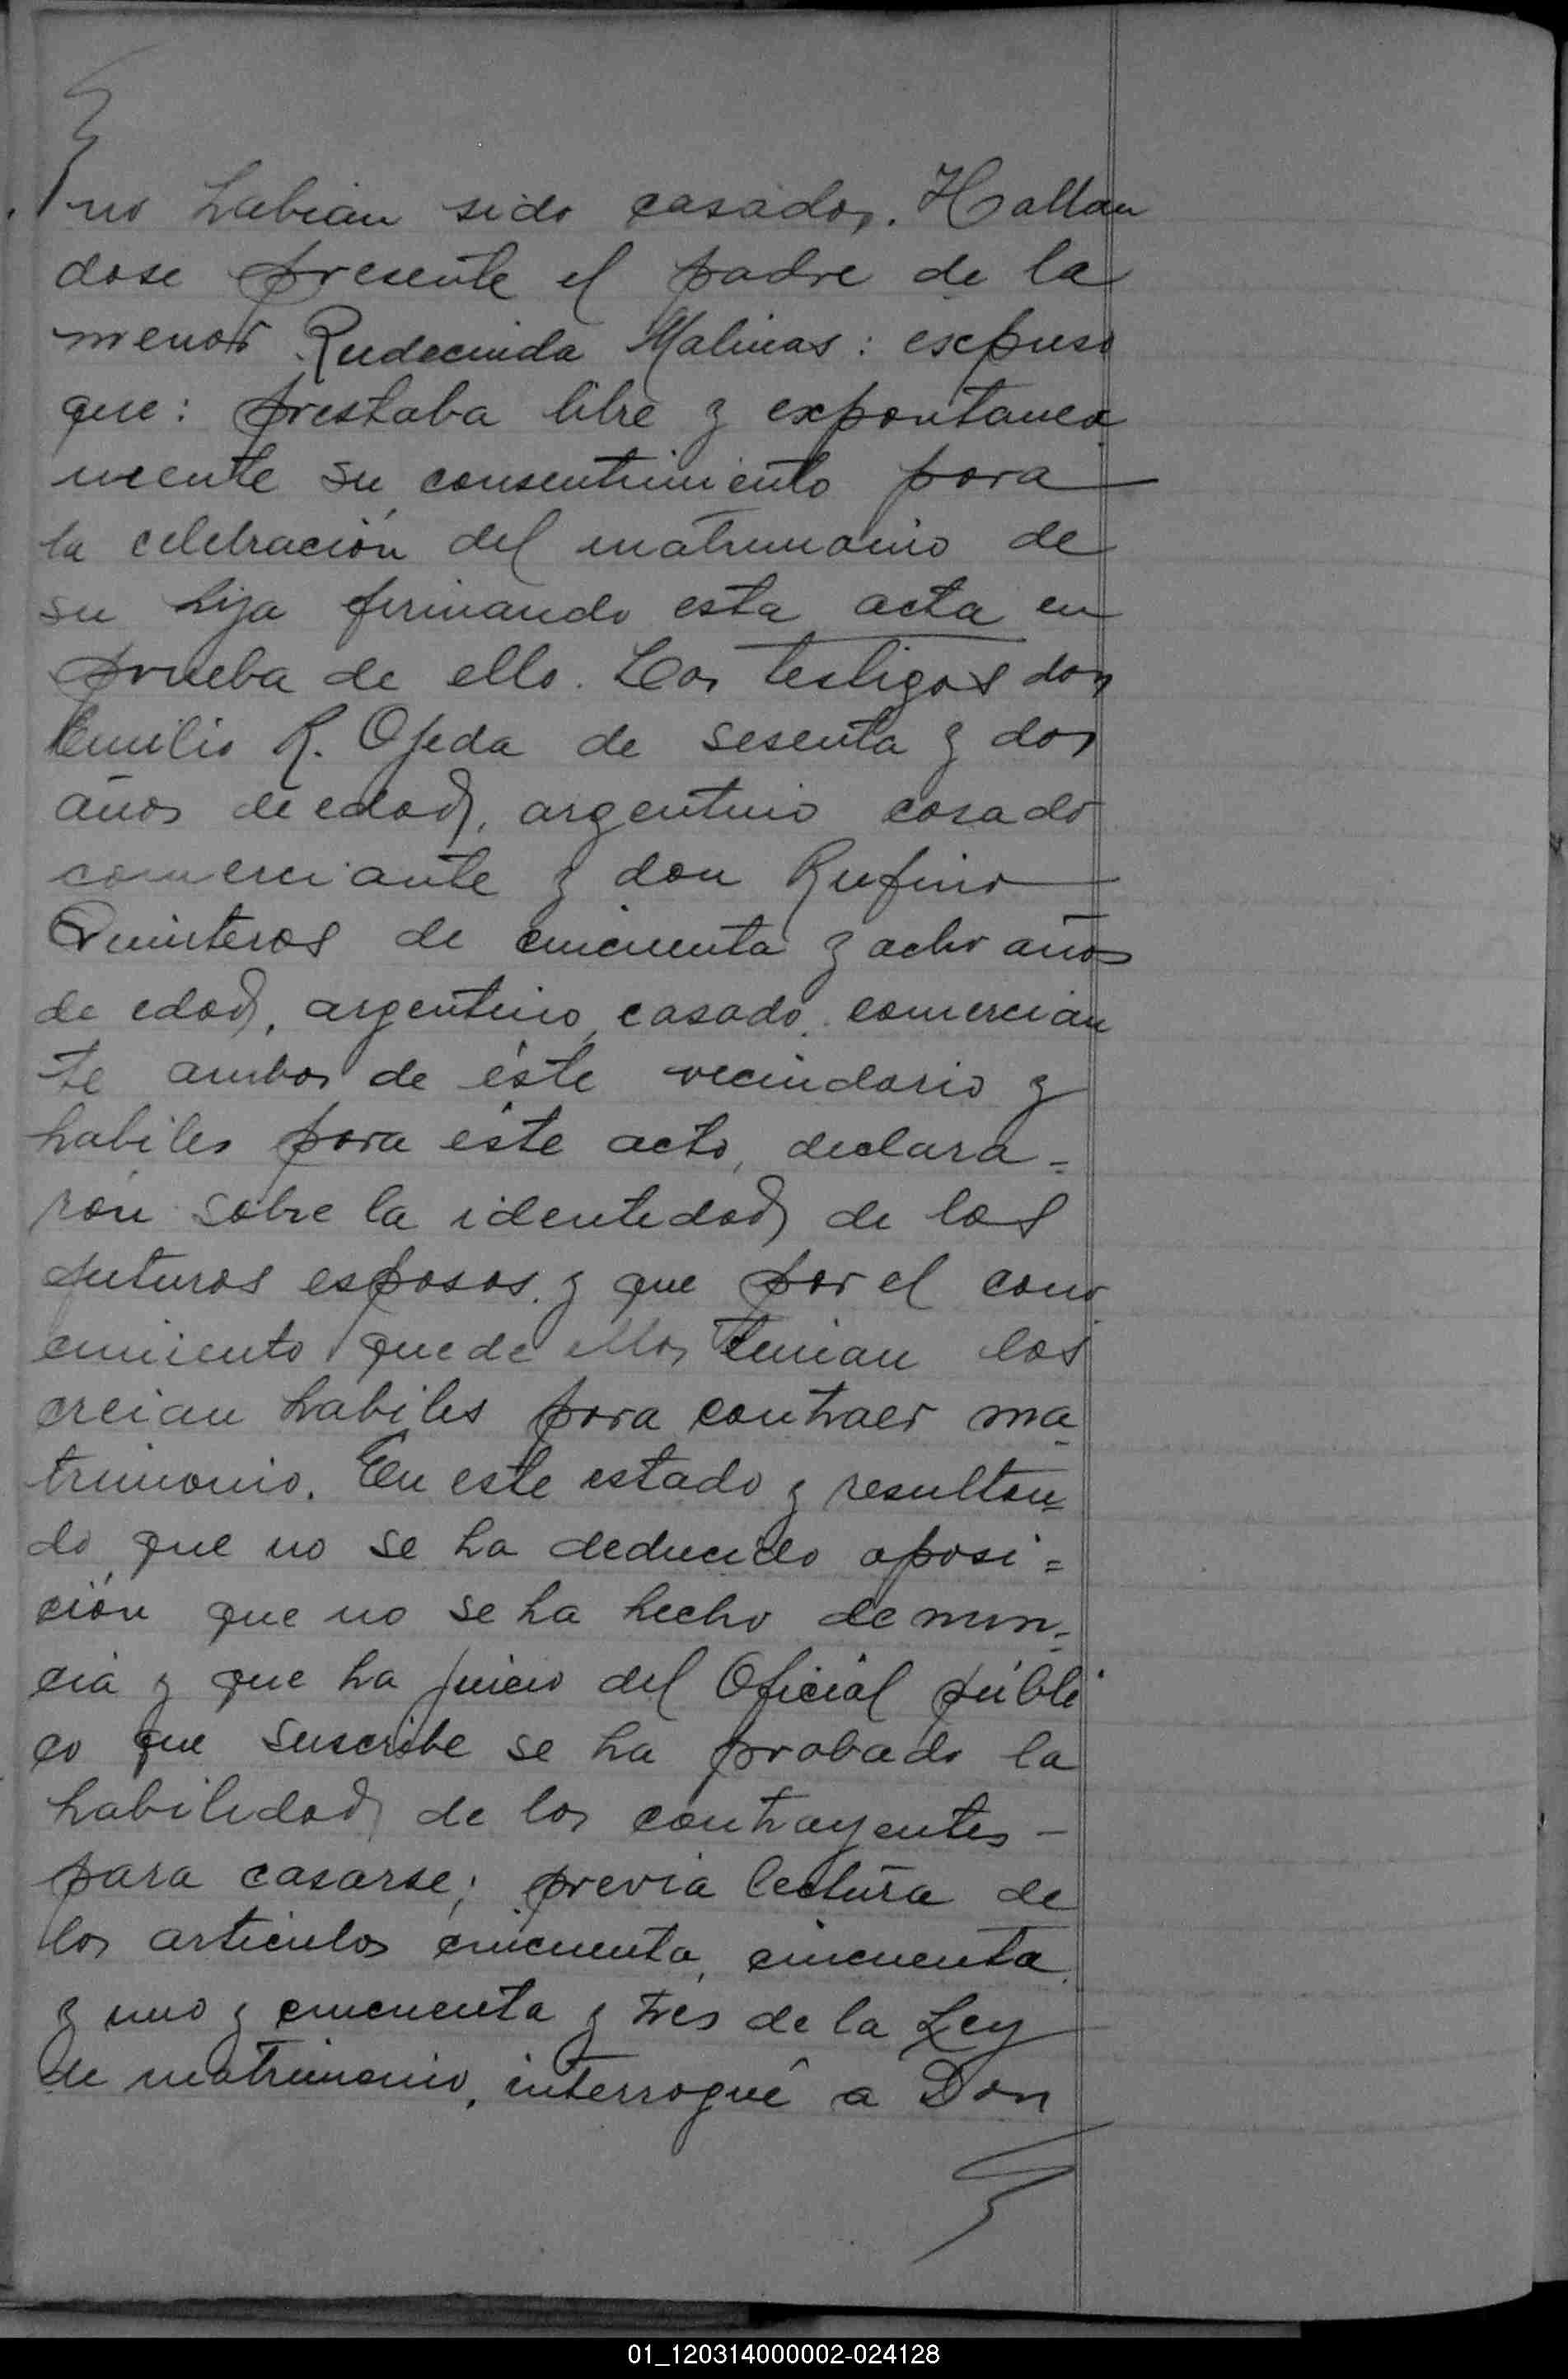 no habian sido casados. Hallan
dose presente el padre de la
menor Rudecinda Malinas: escpuso
que: prestaba libre y expontanea
mente su consentimiento para
la celebración del matrimonio de
su hija firmando esta acta en
prueba de ello. Los testigos don
Emilio R. Ojeda de sesenta y dos
años de edad, argentino casado
comerciante y don Rufino
Quinteros de cincuenta y ocho años
de edad, argentino, casado, comercian
te ambos de éste vecindario y
habiles para éste acto, declara=
ron sobre la identidad de los
futuros esposos. y que por el cono
cimiento que de ellos tenian los
creian habiles para contraer ma
trimonio. En este estado y resultan=
do, que no se ha deducido oposi=
ción que no se ha hecho denun=
cia y que ha juicio del Oficial públi
co que suscribe se ha probado la
habilidad de los contrayentes -
para casarse; previa lectura de
los articulos cincuenta, cincuenta
y uno y cincuenta y tres de la Ley
de matrimonio, interrogué a Don
01_120314000002-024128